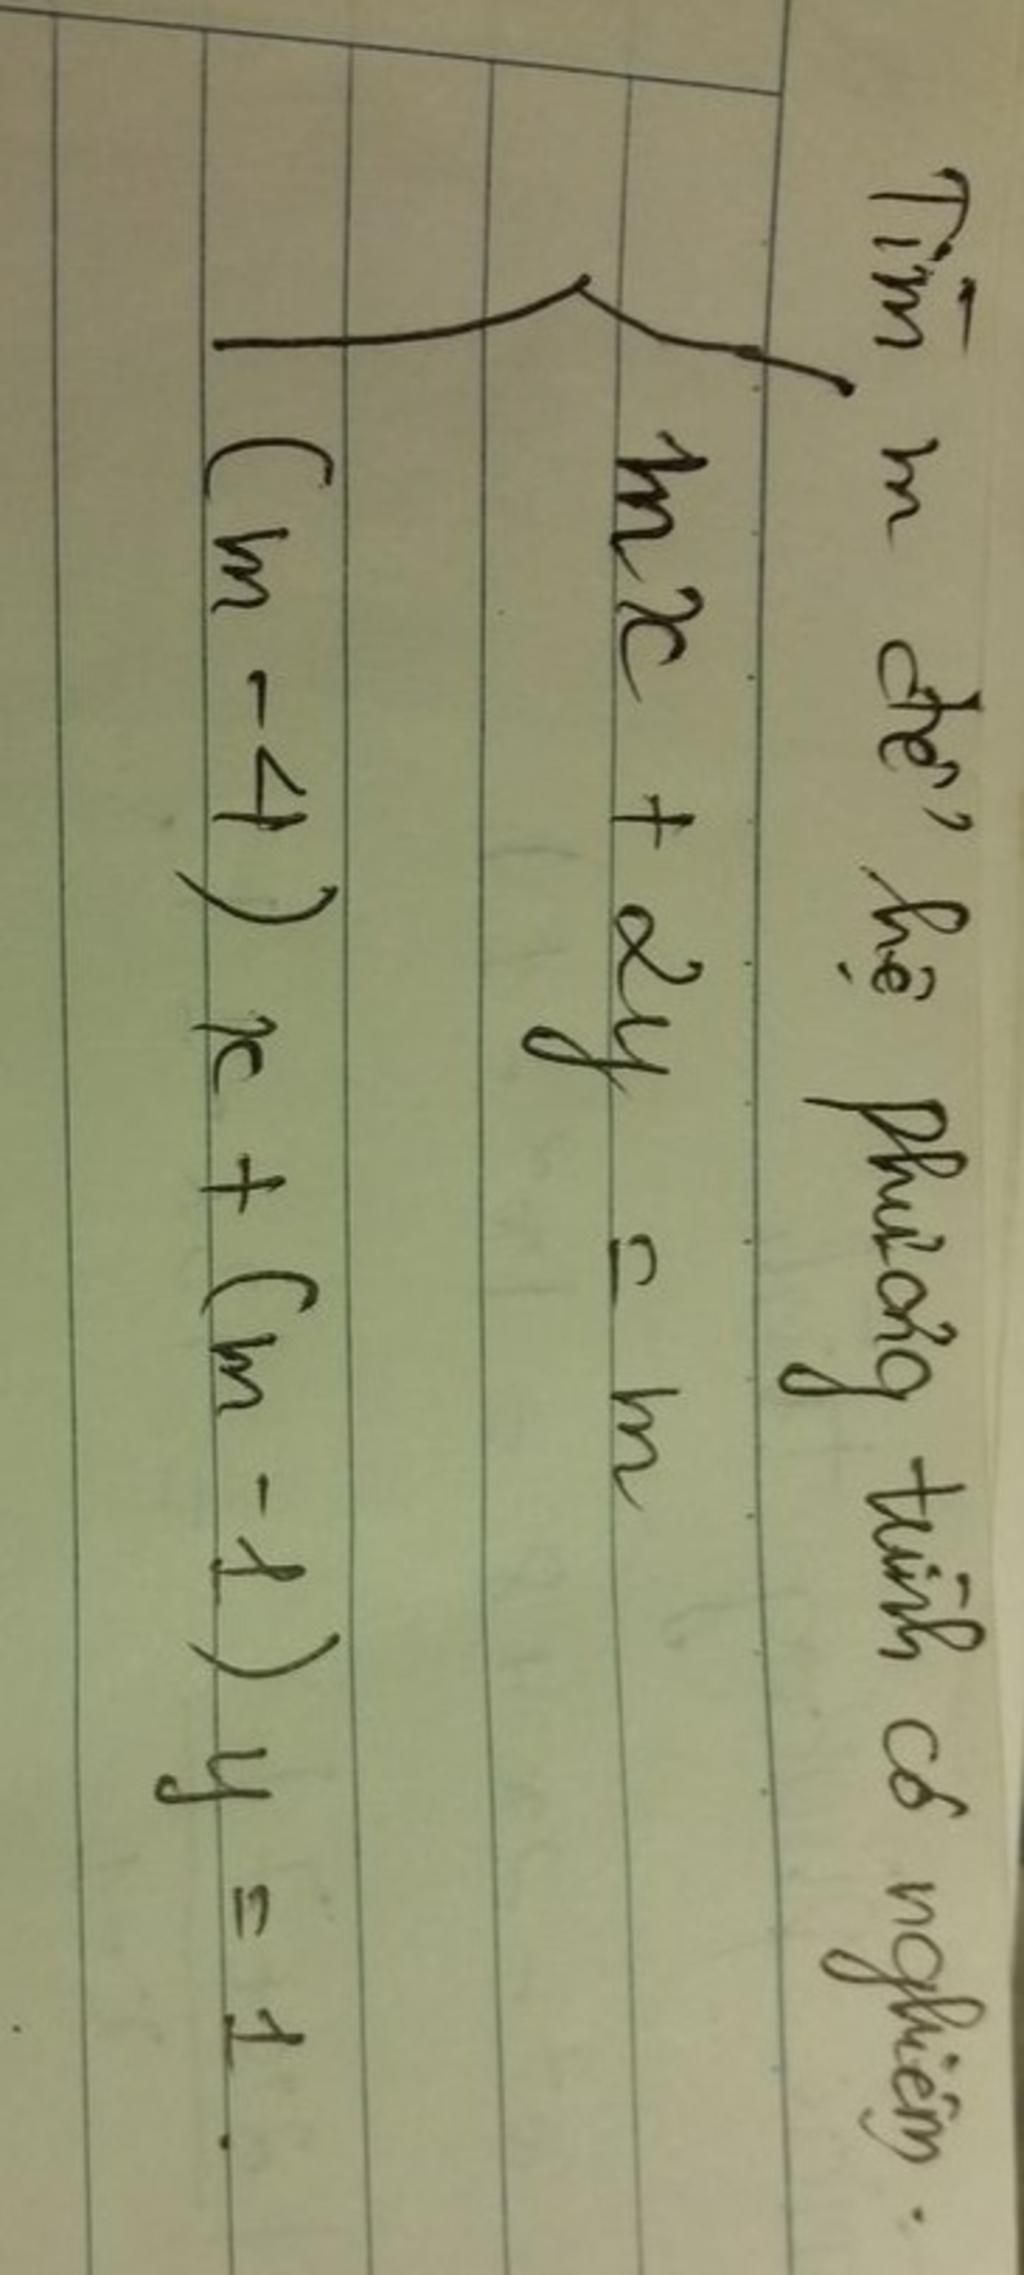 Tìm m để hệ phương trình có nghiệm.
mx + 2y = m
(m - 4) x + (m - 1) y = 1.